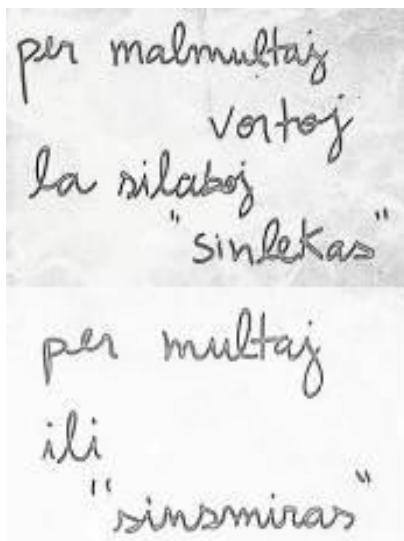 per malmultaj
vortoj
la silaboj
"sinlekas"
per multaj
ili
"sinsmiras"